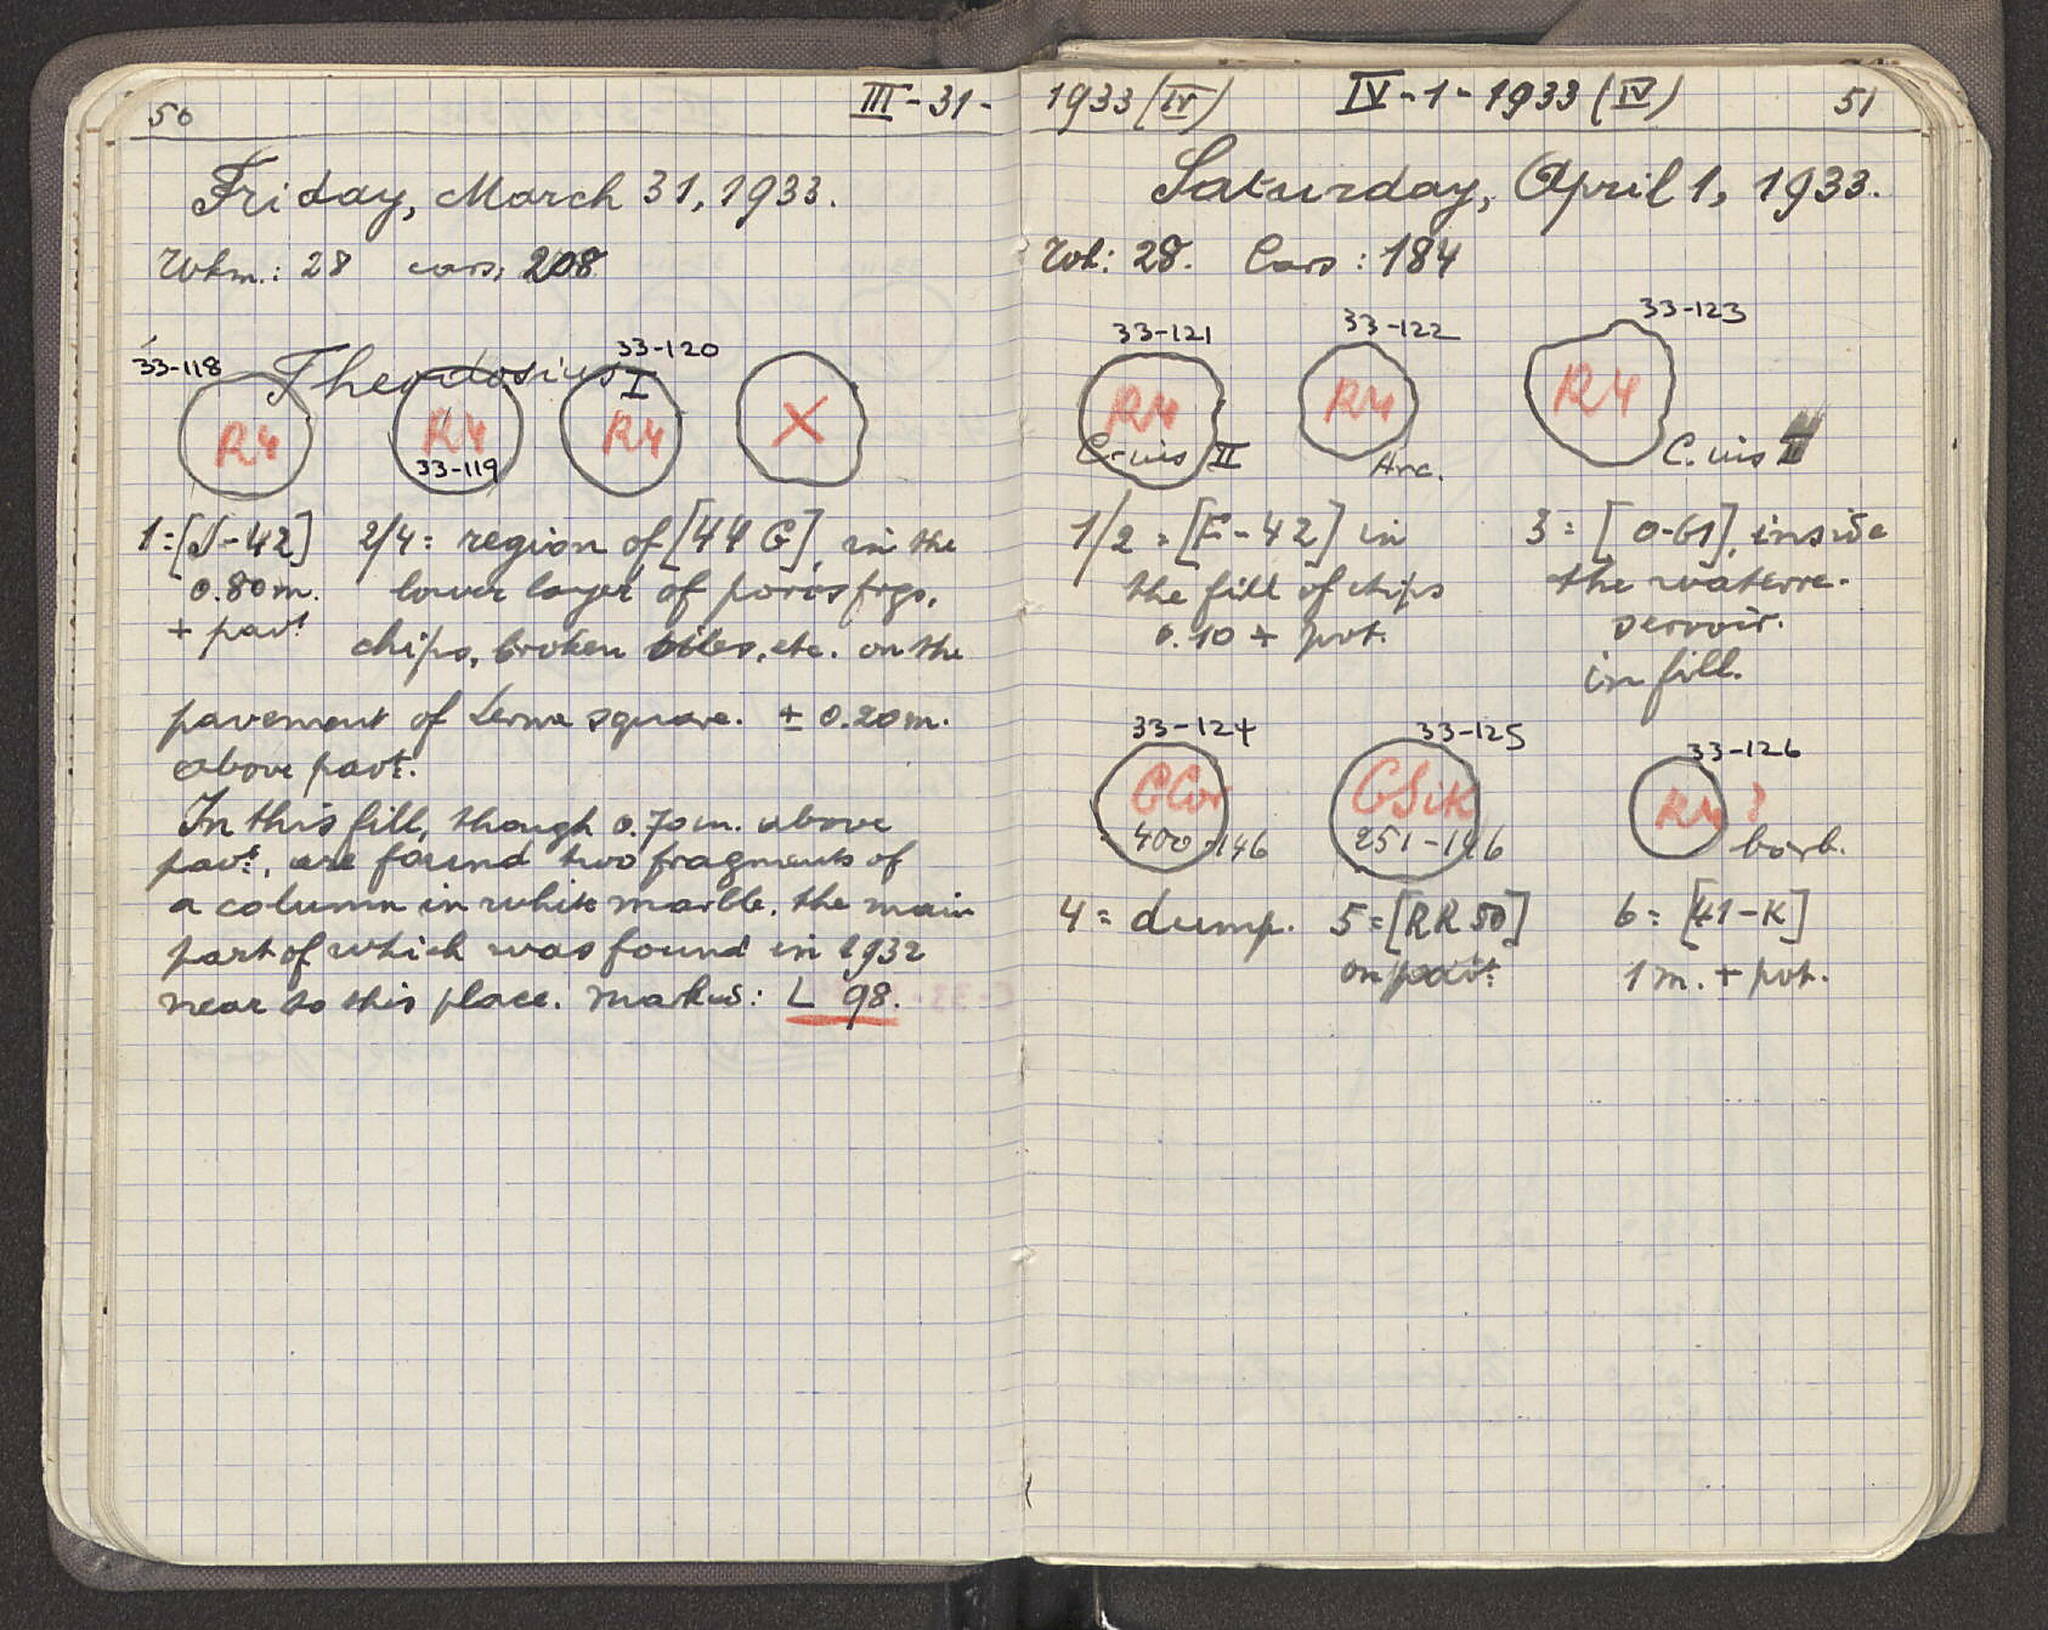 50
III - 31 -
Friday, March 31, 1933.
Wkm.: 28 cars: 208
33-118
Theodosius I
33-120
R4
R4
33-119
R4
X
1=[N-42] 2/4= region of [44 G], in the
0.80m. lower layer of poros frgs,
+ pavt chips, broken tiles, etc. on the
pavement of Lerna square. ± 0.20m.
above pavt.
In this fill, though 0.70m. above
pavt., are found two fragments of
a column in white marble, the main
part of which was found in 1932
near to this place. Marked: L 98.
1933 (IV) IV - 1 - 1933 (IV) 51
Saturday, April 1, 1933.
Wk: 28. Cars: 184
33-121
33-122
33-123
R4
R4
R4
C-ius II
Arc.
C. ius II
1/2 = [F-42] in 3 = [O-61], inside
the fill of chips the waterre-
0.10 + pvt. servoir.
in fill.
33-124
33-125
33-126
GCor
GSiK
R4?
400-146
251-146
barb.
4 = dump. 5=[RR 50] 6= [41-K]
on pavt. 1 m. + pvt.